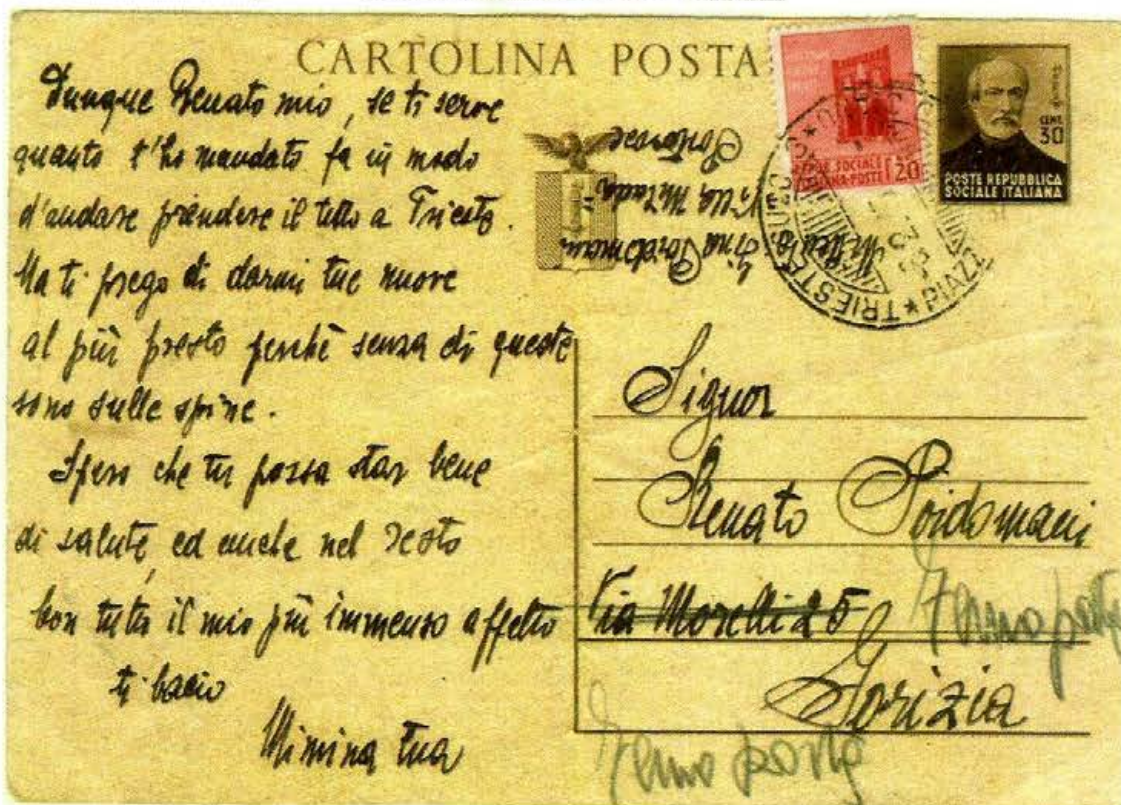 CARTOLINA POSTA
Dunque Renato mio, se ti serve
quanto t'ho mandato fa in modo
d'andare prendere il tutto a Trieste.
Ma ti prego di darmi tue nuove
al più presto perchè senza di queste
sono sulle spine.
Spero che tu possa star bene
di salute, ed anche nel resto
Con tutto il mio più immenso affetto
ti bacio
Mimina tua
Mittente
Gina Poidomani
Villa
Portorose
SOCIALE
POSTE
20
CENT.
30
POSTE REPUBBLICA
SOCIALE ITALIANA
TRIESTE
PIAZZ
Signor
Renato Poidomani
Via Morelli 25
Gorizia
Fermo posta
Fermo posta